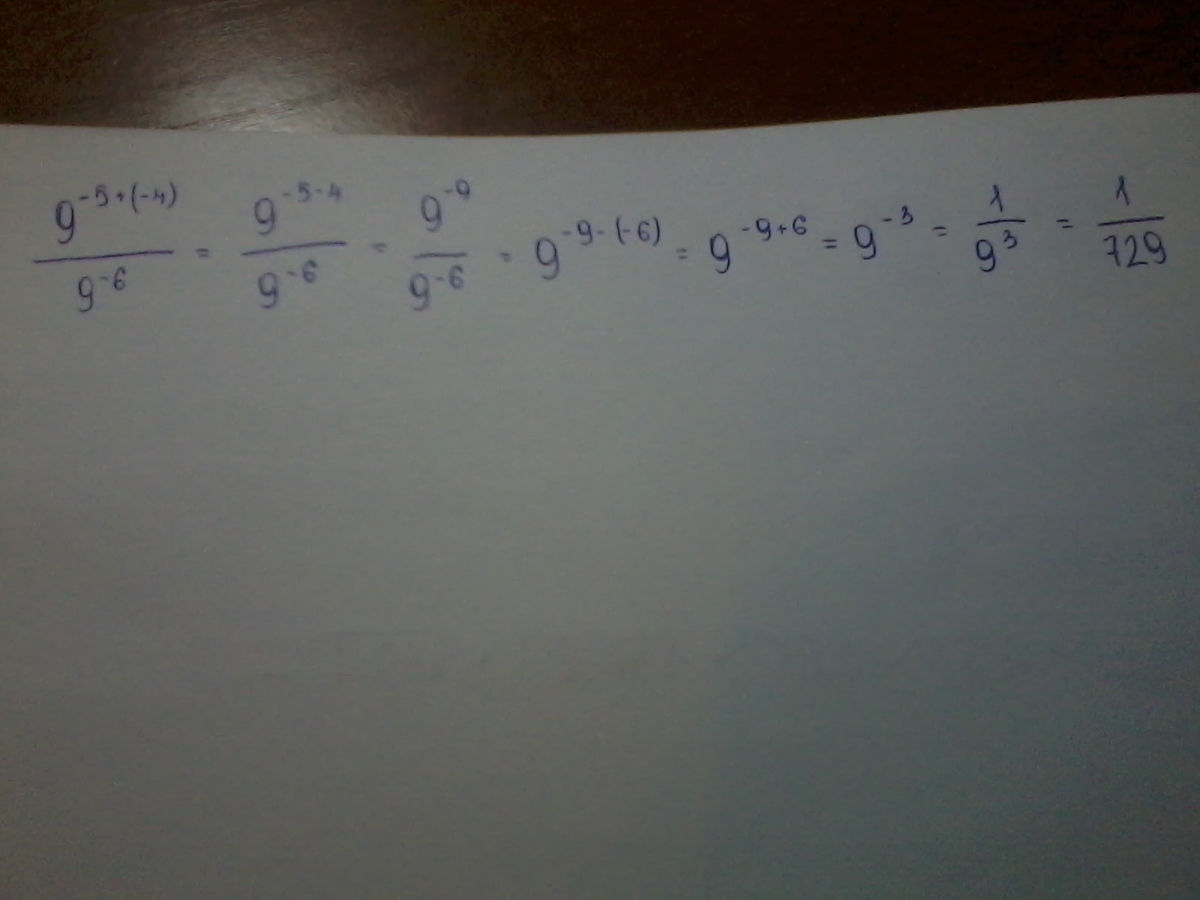 9^{-5+(-4)}/9^{-6} = 9^{-5-4}/9^{-6} = 9^{-9}/9^{-6} = 9^{-9-(-6)} = 9^{-9+6} = 9^{-3} = 1/9^{3} = 1/729